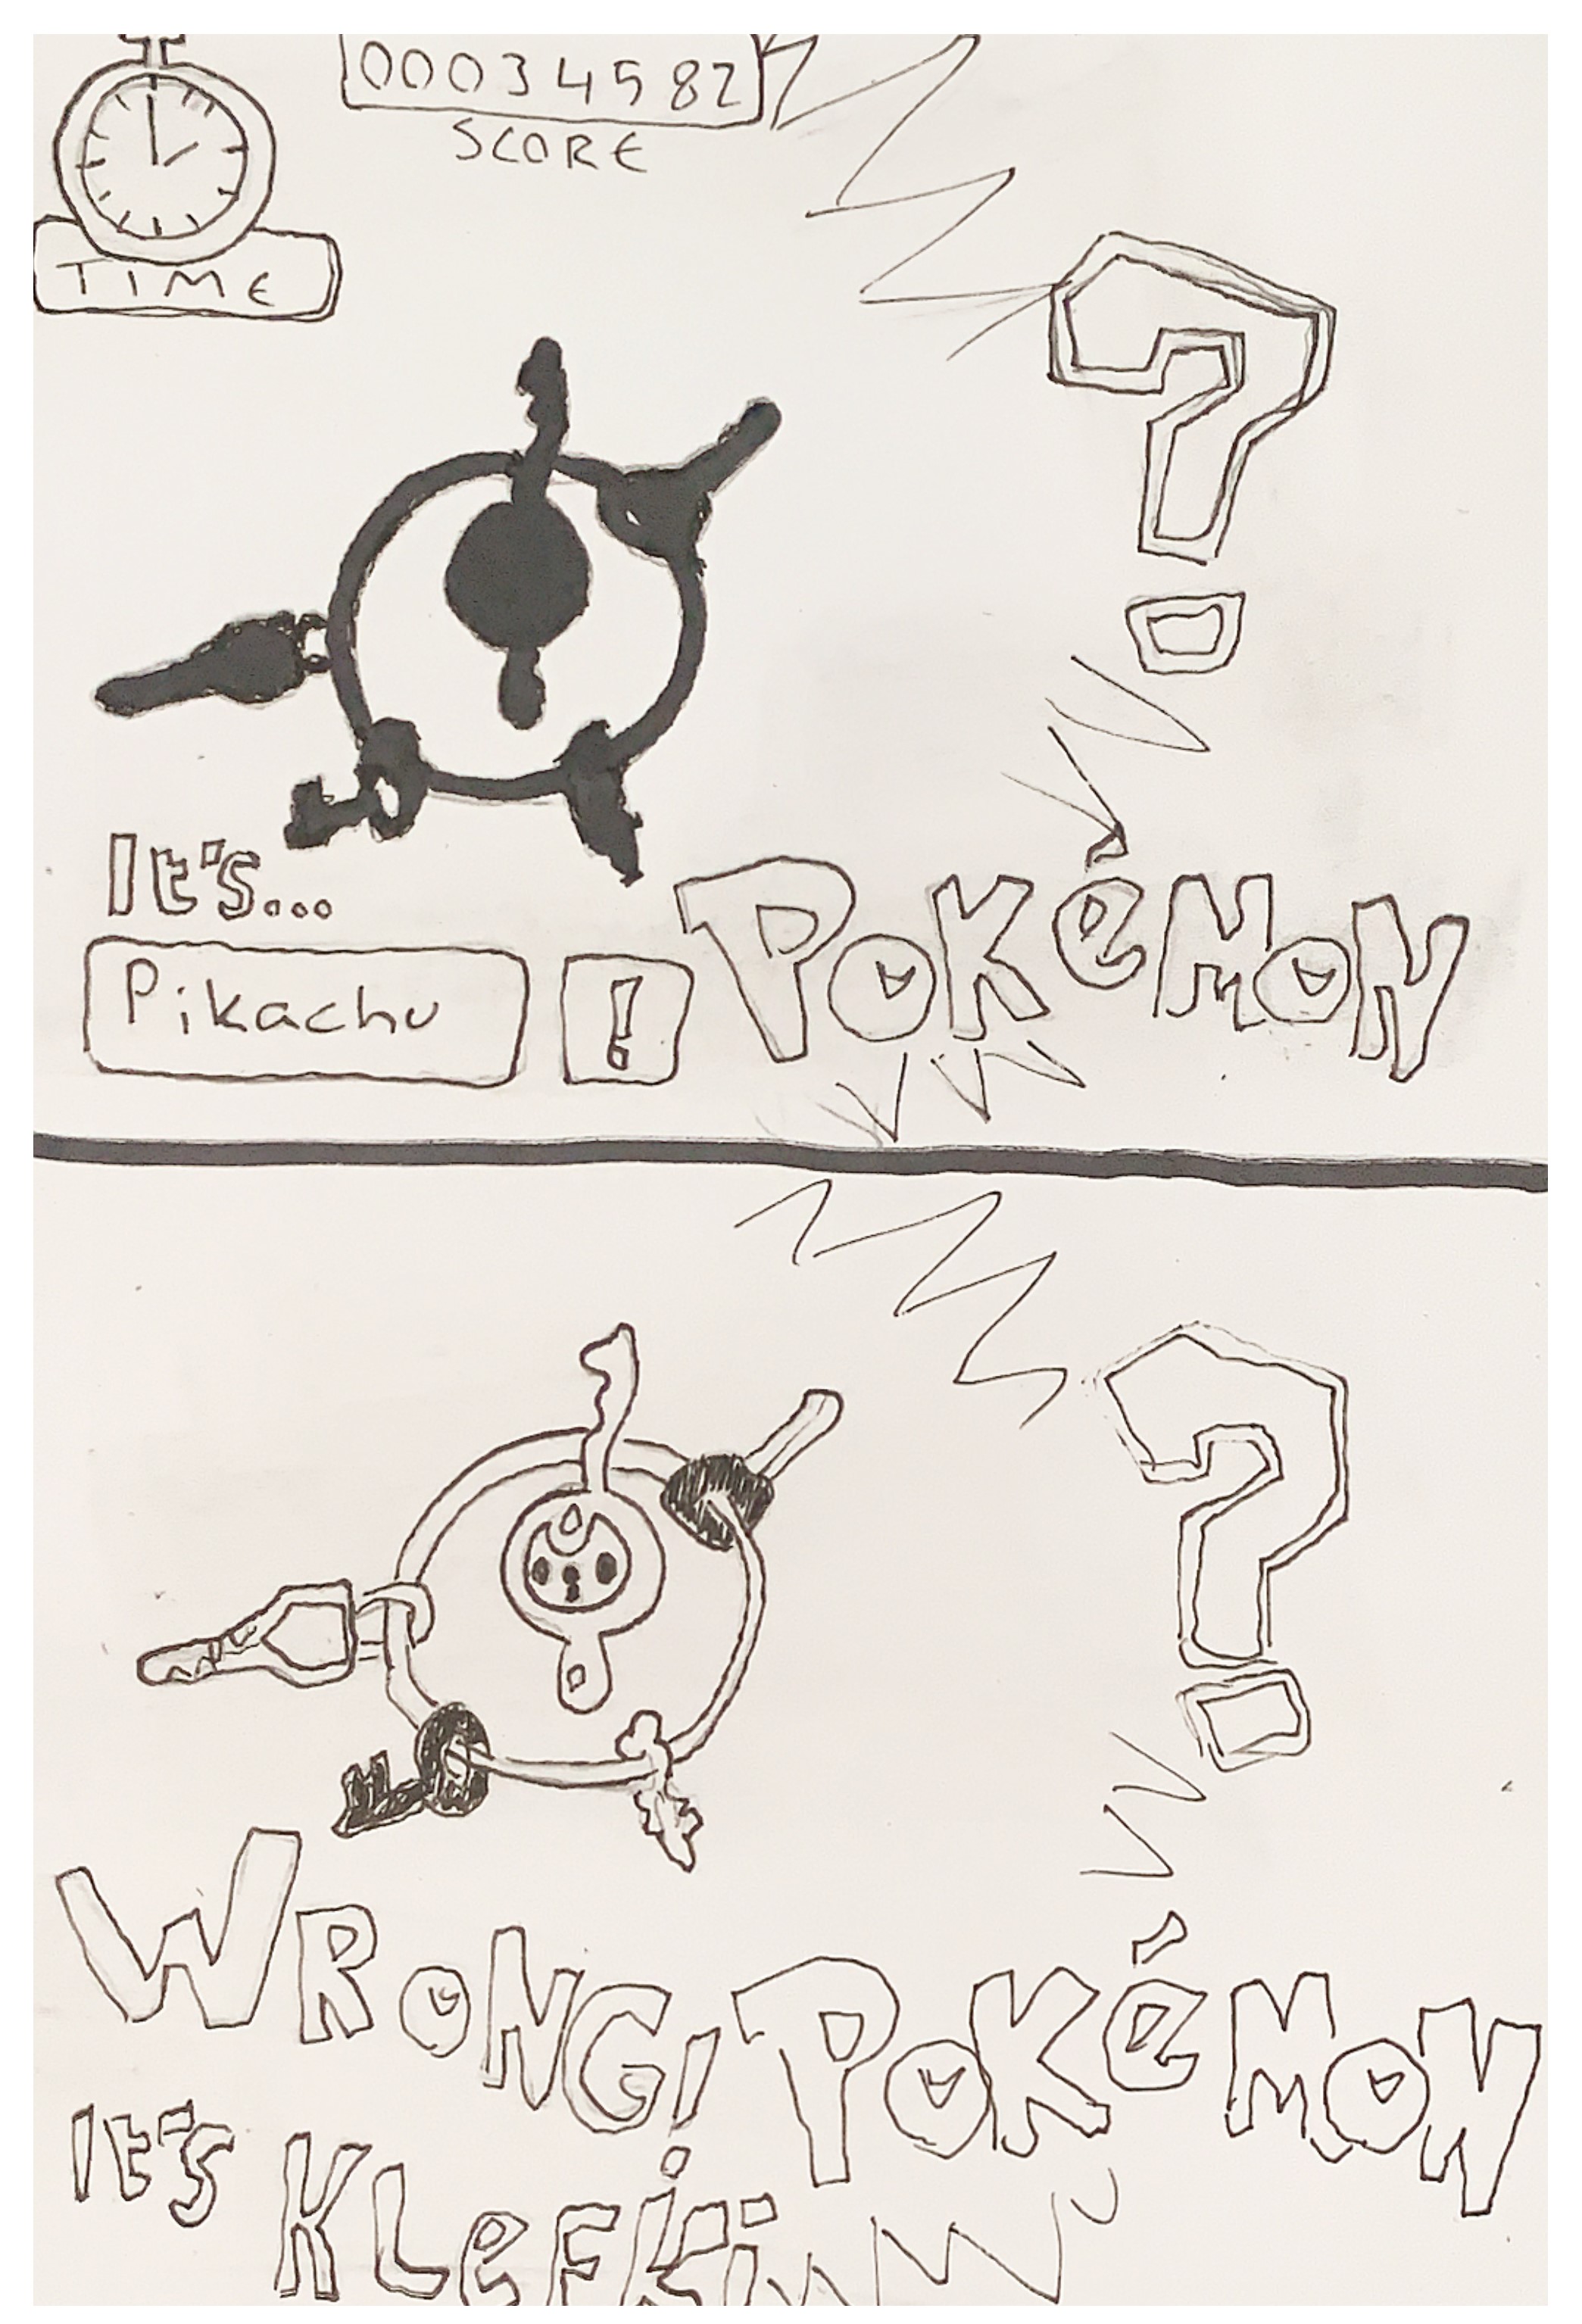 00034582
SCORE
TIME
?
It's...
Pikachu !
POKéMON
?
WRONG!
POKéMON
It's KLeFKi